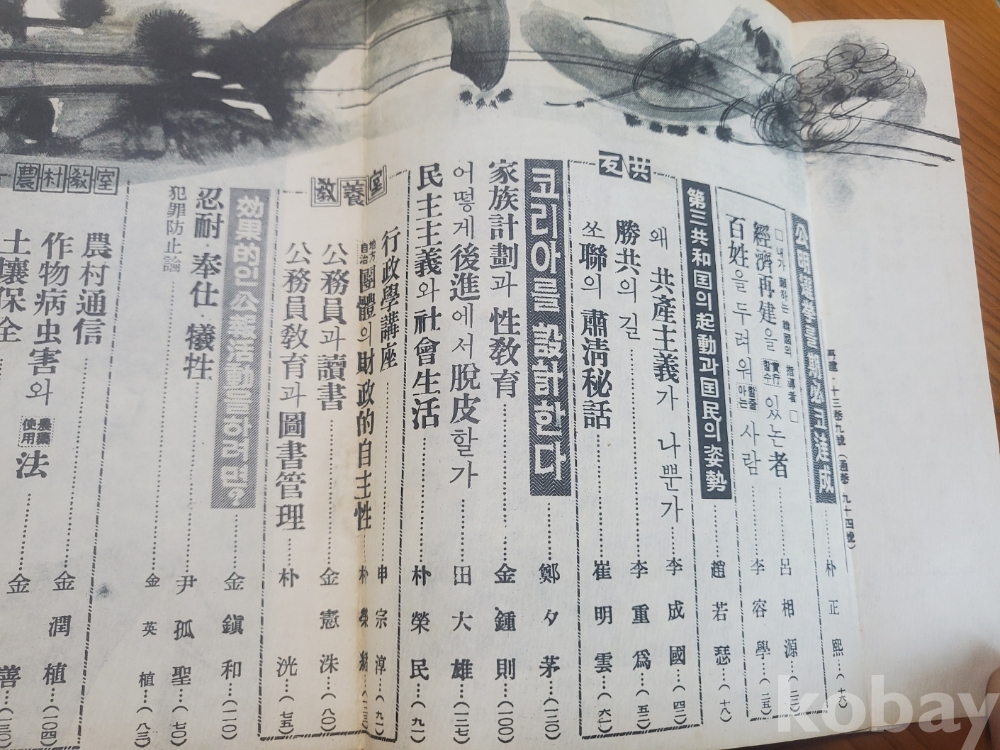 十三卷九號(通卷 九十四號)
公明選擧를 期必코 達成 朴正熙
□내가 願하는 韓國의 指導者□
經濟再建을 있는者 呂相源
百姓을 두려워 할줄아는 사람 李容學 (二五)
第三共和国의起動과国民의姿勢 趙若瑟 (一八)
反共
왜 共產主義가 나뿐가 李成國 (四二)
勝共의 길 李重爲 (五二)
쏘聯의 肅淸秘話 崔明雲 (六一)
코리아를 設計한다 鄭夕茅 (二〇)
家族計劃과 性敎育 金鍾則 (一〇〇)
어떻게 後進에서 脫皮할가 田大雄 (一二七)
民主主義와 社會生活 朴榮民 (九一)
敎養室
行政學講座 申宗淳 (九一)
地方自治團體의 財政的自主性 朴榮
公務員과 讀書 金憲洙 (八〇)
公務員敎育과 圖書管理 朴洸 (七五)
効果的인 公報活動을 하려면? 金鎭和 (一一〇)
忍耐·奉仕·犧牲 尹孤聖 (七〇)
犯罪防止論 金英植 (八三)
農村敎室
農村通信
作物病虫害와 農藥使用法 金潤植 (一〇四)
土壤保全 金 善
kobay